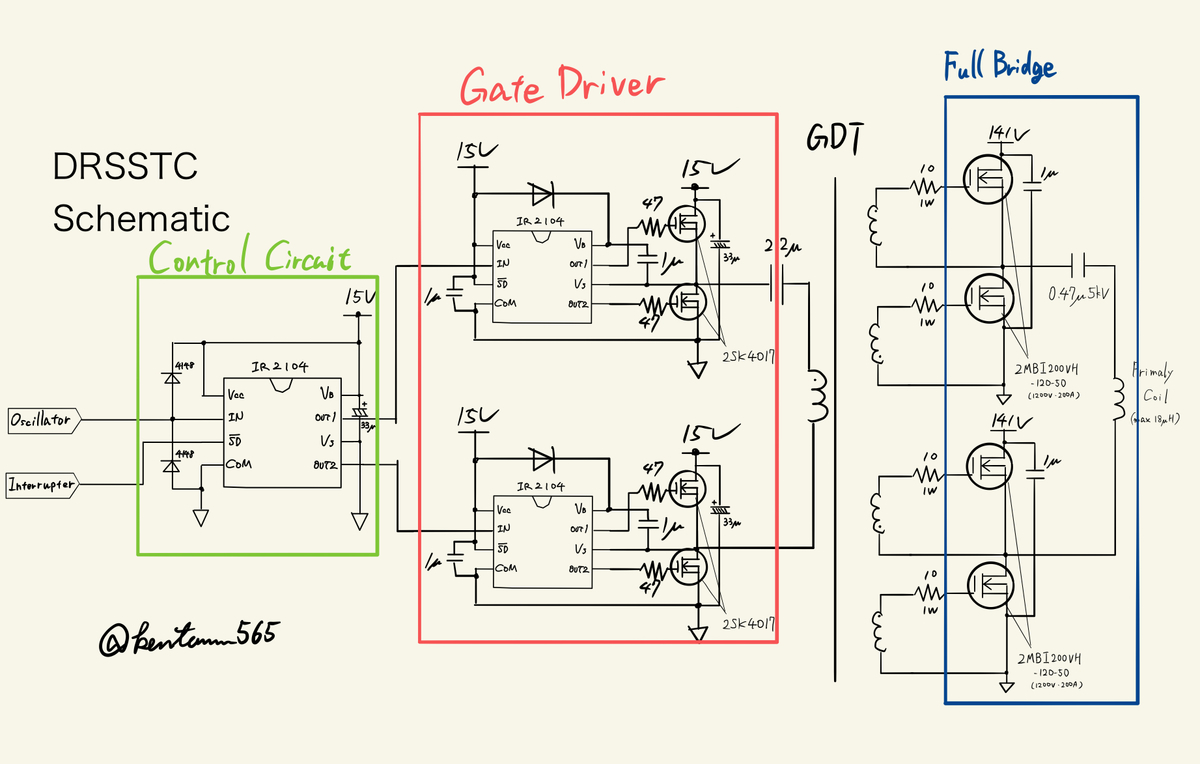 DRSSTC
Schematic
Control Circuit
15V
4148
4148
IR2104
Vcc
IN
SD
COM
VB
OUT1
VS
OUT2
+
33μ
Oscillator
Interrupter
Gate Driver
15V
IR2104
Vcc
IN
SD
COM
VB
OUT1
VS
OUT2
1μ
47
47
1μ
15V
+
33μ
2SK4017
2.2μ
15V
IR2104
Vcc
IN
SD
COM
VB
OUT1
VS
OUT2
1μ
47
47
1μ
15V
+
33μ
2SK4017
GDT
Full Bridge
141V
10
1W
1μ
10
1W
0.47μ5kV
2MBI200VH
-120-50
(1200V・200A)
Primaly
Coil
(max 18μH)
141V
10
1W
1μ
10
1W
2MBI200VH
-120-50
(1200V・200A)